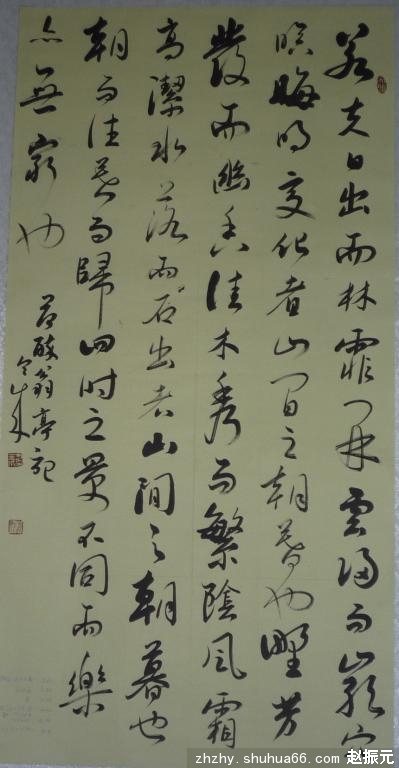 若夫日出而林霏開雲歸而巖穴
暝晦明變化者山間之朝暮也野芳
發而幽香佳木秀而繁陰風霜
高潔水落而石出者山間之朝暮也
朝而往暮而歸四时之景不同而樂
亦無窮也
醉翁亭記
zhzhy.shuhua66.com 赵振元